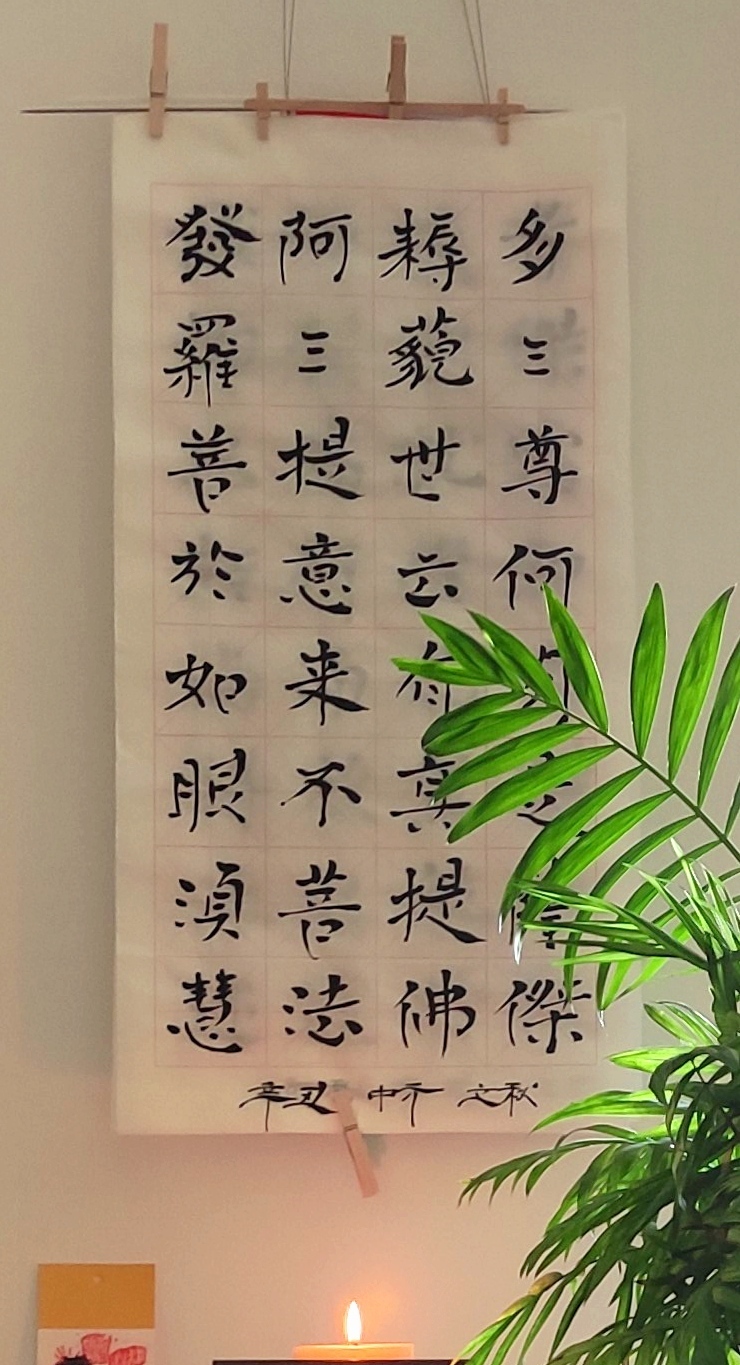 多三尊何傑
耨藐世云真提佛
阿三提意来不菩法
發羅菩於如眼須慧
辛丑 中 文秋